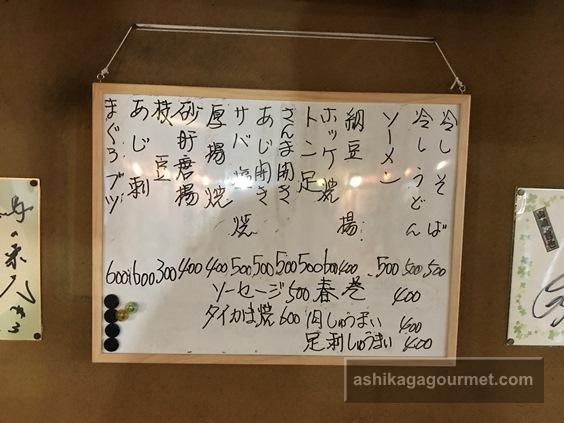 冷しそば 500
冷しうどん 500
ソーメン 500
納豆揚 400
ホッケ焼 600
トン足 500
さんま開き 500
あじ開き 500
サバ塩焼 500
厚揚焼 400
砂肝唐揚 400
枝豆 300
あじ刺 600
まぐろブツ 600
ソーセージ 500 春巻 400
タイカは焼 600 肉しゅうまい 400
足刺しゅうまい 400
ashikagagourmet.com